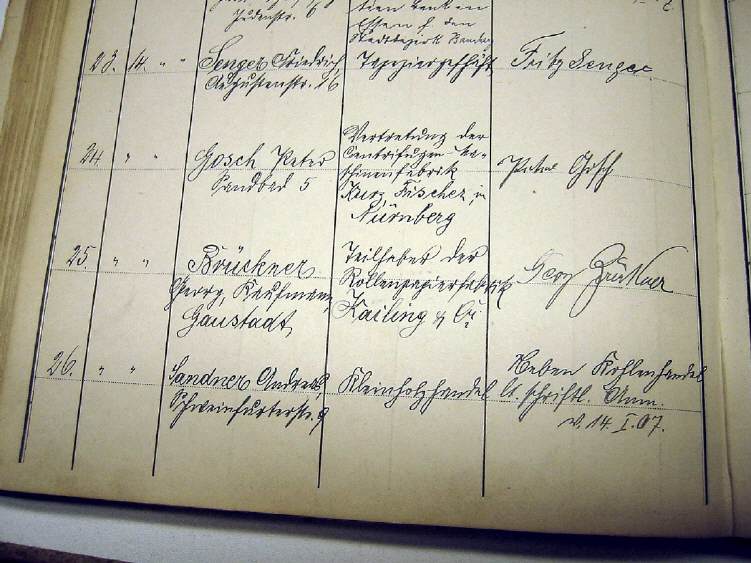 Judenstr. 6
Essen f. den
Stadtbezirk Bamberg
23. 14. " " Senger Friedrich, Tapeziergeschäft Fritz Senger.
Augustenstr. 16
Vertretung der
24 " " Gosch Peter Centrifugen Ma-
Sandbad 5 schinenfabrik Peter Gosch
Kurz, Fischer, in
Nürnberg
25. " " Brückner Teilhaber der Georg Brückner
Georg, Kaufmann, Rollenpapierfabrik
Gaustadt, Kailing & Co.
26. " " Sandner Andreas, Kleinholzhandel Neben Kohlenhandel
Schweinfurterstr. 9 lt. schriftl. Anm.
v. 14. I. 07.